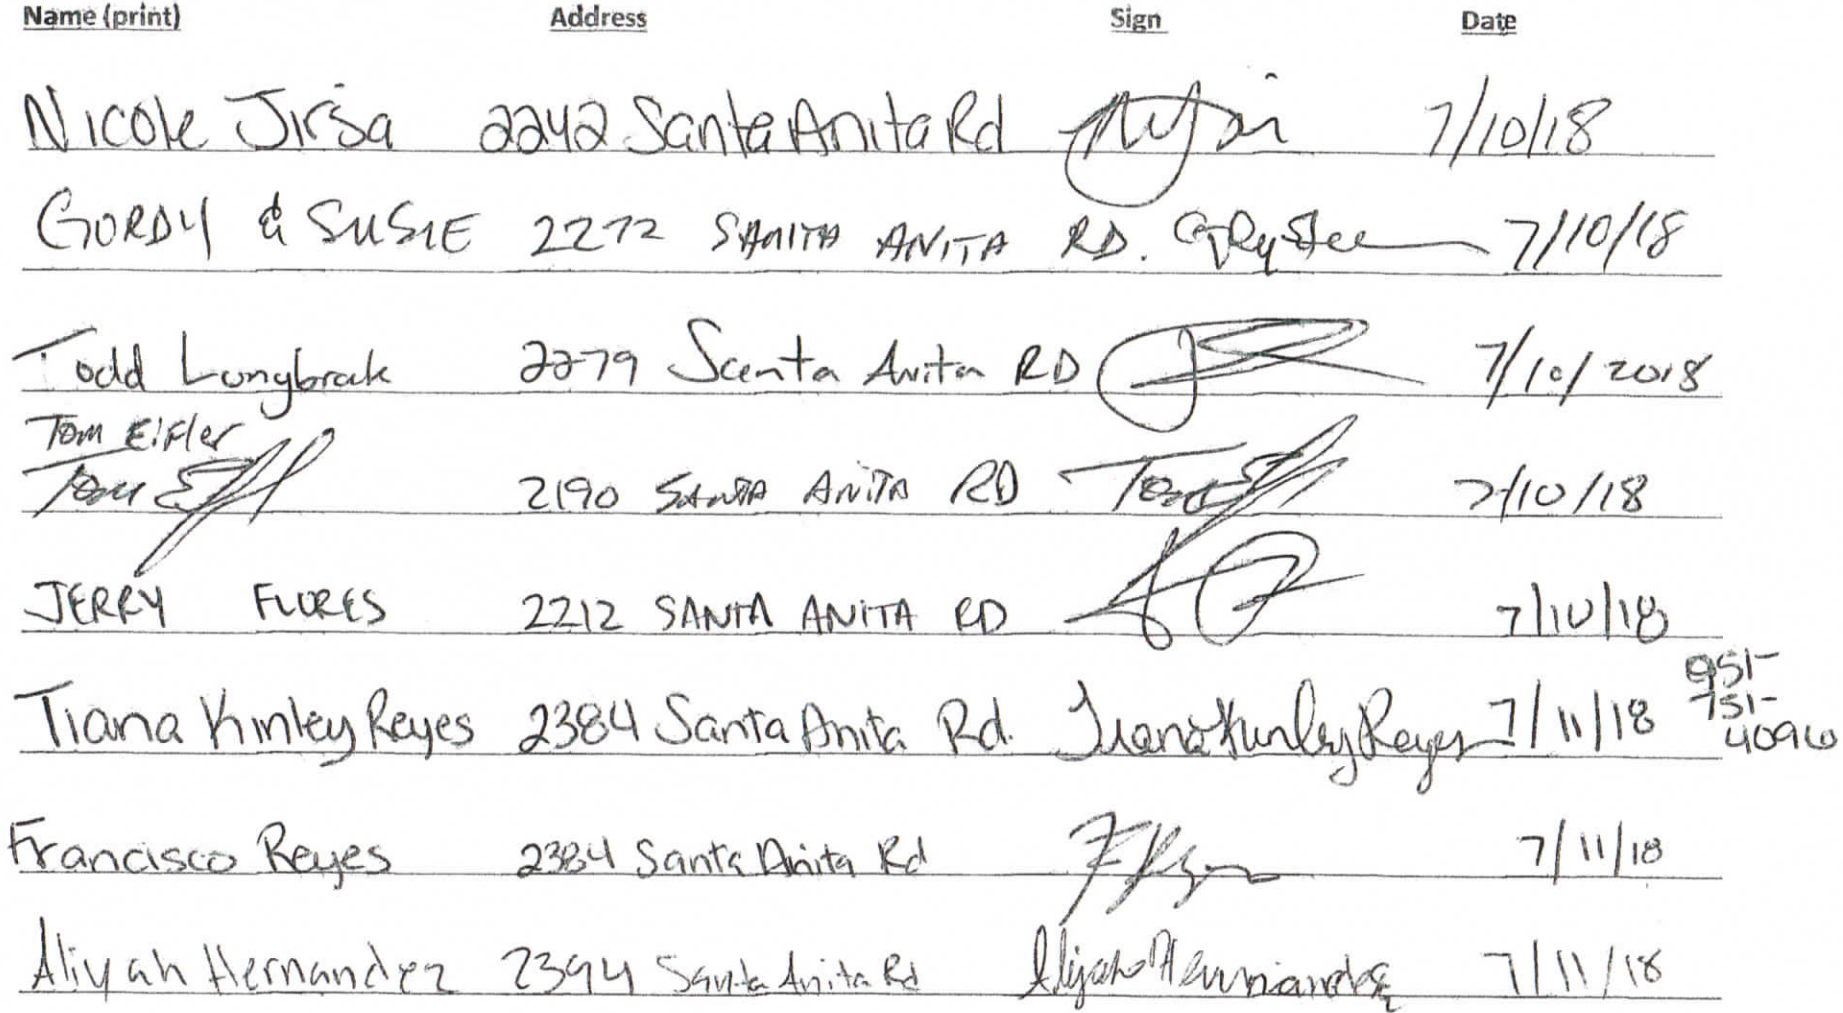 Name (print) Address Sign Date
Nicole Jirsa 2242 Santa Anita Rd 7/10/18
GORDY & SUSIE 2272 SANTA ANITA RD. 7/10/18
Todd Longbrak 2279 Santa Anita RD 7/10/2018
Tom Eifler
2190 SANTA ANITA RD 7/10/18
JERRY FLORES 2212 SANTA ANITA RD 7/10/18
Tiana Kinley Reyes 2384 Santa Anita Rd. Tiana Kinley Reyes 7/11/18 951-
751-
4096
Francisco Reyes 2384 Santa Anita Rd 7/11/18
Aliyah Hernandez 2394 Santa Anita Rd Aliyah Hernandez 7/11/18